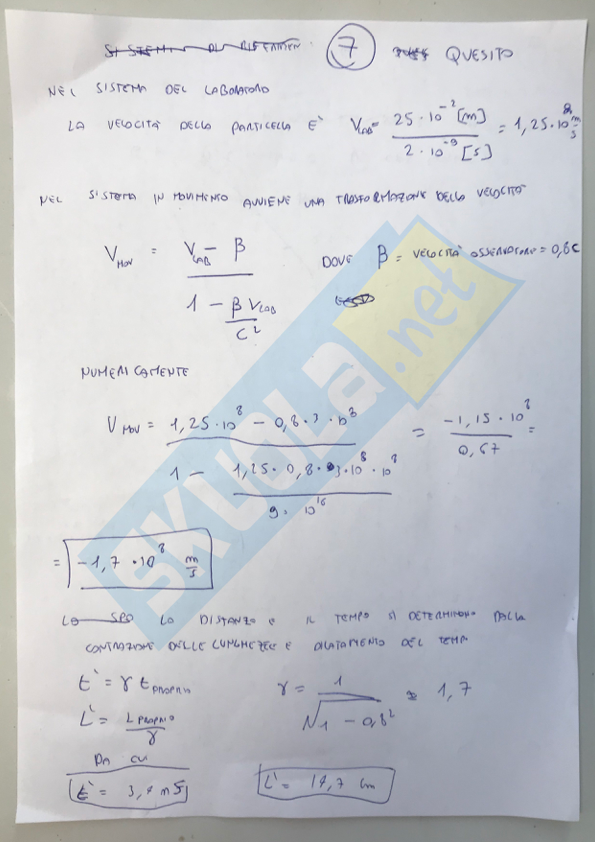 SISTEMI DI RIFERIMEN 7 QUESITO
NEL SISTEMA DEL LABORATORIO
LA VELOCITÀ DELLA PARTICELLA E' V_LAB = 25 · 10^-2 [m] / 2 · 10^-9 [s] = 1,25 · 10^8 m/s
NEL SISTEMA IN MOVIMENTO AVVIENE UNA TRASFORMAZIONE DELLA VELOCITÀ
V_MOV = (V_LAB - β) / (1 - β V_LAB / C^2) DOVE β = VELOCITÀ OSSERVATORE = 0,8C
NUMERICAMENTE
V_MOV = (1,25 · 10^8 - 0,8 · 3 · 10^8) / (1 - 1,25 · 0,8 · 3 · 10^8 · 10^8 / 9 · 10^16) = -1,15 · 10^8 / 0,67 =
= -1,7 · 10^8 m/s
LO SPO LA DISTANZA E IL TEMPO SI DETERMINANO DALLA
CONTRAZIONE DELLE LUNGHEZZE E DILATAMENTO DEL TEMPO
t' = γ t_PROPRIO γ = 1 / √(1 - 0,8^2) ≈ 1,7
L' = L_PROPRIO / γ
DA CUI
t' = 3,4 nS L' = 14,7 cm
SKUOLA.net